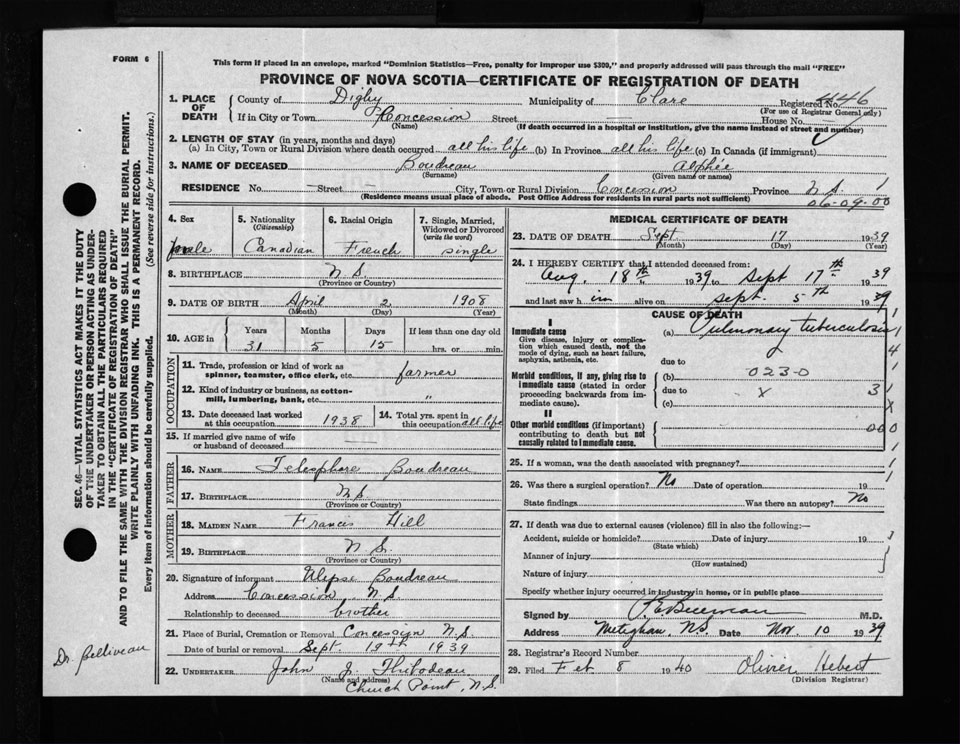 FORM 6
This form if placed in an envelope, marked "Dominion Statistics—Free, penalty for improper use $300," and properly addressed will pass through the mail "FREE"
PROVINCE OF NOVA SCOTIA—CERTIFICATE OF REGISTRATION OF DEATH
1. PLACE OF DEATH County of Digby Municipality of Clare Registered No. 446
(For use of Registrar General only)
If in City or Town Concession Street House No.
(Name) (If death occurred in a hospital or institution, give the name instead of street and number)
2. LENGTH OF STAY (in years, months and days)
(a) In City, Town or Rural Division where death occurred all his life (b) In Province all his life (c) In Canada (if immigrant)
3. NAME OF DECEASED Boudreau Alphée
(Surname) (Given name or names)
RESIDENCE No. Street City, Town or Rural Division Concession Province N.S. 1
(Residence means usual place of abode. Post Office Address for residents in rural parts not sufficient) 06-09-00
4. Sex male
5. Nationality (Citizenship) Canadian
6. Racial Origin French
7. Single, Married, Widowed or Divorced (write the word) single
8. BIRTHPLACE N.S.
(Province or Country)
9. DATE OF BIRTH April 2 1908
(Month) (Day) (Year)
10. AGE in Years Months Days If less than one day old
31 5 15 hrs. or min.
OCCUPATION
11. Trade, profession or kind of work as spinner, teamster, office clerk, etc. farmer
12. Kind of industry or business, as cotton-mill, lumbering, bank, etc. "
13. Date deceased last worked at this occupation 1938
14. Total yrs. spent in this occupation all life
15. If married give name of wife or husband of deceased
FATHER
16. NAME Telesphore Boudreau
17. BIRTHPLACE N.S.
(Province or Country)
MOTHER
18. MAIDEN NAME Frances Hill
19. BIRTHPLACE N.S.
(Province or Country)
20. Signature of informant Ulysse Boudreau
Address Concession N.S
Relationship to deceased brother
21. Place of Burial, Cremation or Removal Concession N.S
Date of burial or removal Sept 19th 1939
22. UNDERTAKER John J. Thibodeau
(Name and address)
Church Point, N.S.
MEDICAL CERTIFICATE OF DEATH
23. DATE OF DEATH Sept 17 1939
(Month) (Day) (Year)
24. I HEREBY CERTIFY that I attended deceased from:
Aug. 18th 1939 to Sept 17th 1939
and last saw him alive on Sept. 5th 1939
CAUSE OF DEATH
I
Immediate cause (a) Pulmonary tuberculosis
Give disease, injury or complication which caused death, not the mode of dying, such as heart failure, asphyxia, asthenia, etc.
due to
Morbid conditions, if any, giving rise to immediate cause (stated in order proceeding backwards from immediate cause).
(b) 023-0
due to x 3
(c)
II
Other morbid conditions (if important) contributing to death but not causally related to immediate cause. 000
25. If a woman, was the death associated with pregnancy?
26. Was there a surgical operation? No Date of operation 19
State findings Was there an autopsy? No
27. If death was due to external causes (violence) fill in also the following:—
Accident, suicide or homicide? Date of injury 19
(State which)
Manner of injury
(How sustained)
Nature of injury
Specify whether injury occurred in industry, in home, or in public place
Signed by M.D.
Address Meteghan, N.S. Date Nov. 10 1939
28. Registrar's Record Number
29. Filed Feb 8 1940 Olivier Hebert
(Division Registrar)
SEC. 46—VITAL STATISTICS ACT MAKES IT THE DUTY
OF THE UNDERTAKER OR PERSON ACTING AS UNDER-
TAKER TO OBTAIN ALL THE PARTICULARS REQUIRED
IN THE "CERTIFICATE OF REGISTRATION OF DEATH"
AND TO FILE THE SAME WITH THE DIVISION REGISTRAR WHO SHALL ISSUE THE BURIAL PERMIT.
WRITE PLAINLY WITH UNFADING INK. THIS IS A PERMANENT RECORD.
Every item of information should be carefully supplied. (See reverse side for instructions.)
Dr. Belliveau